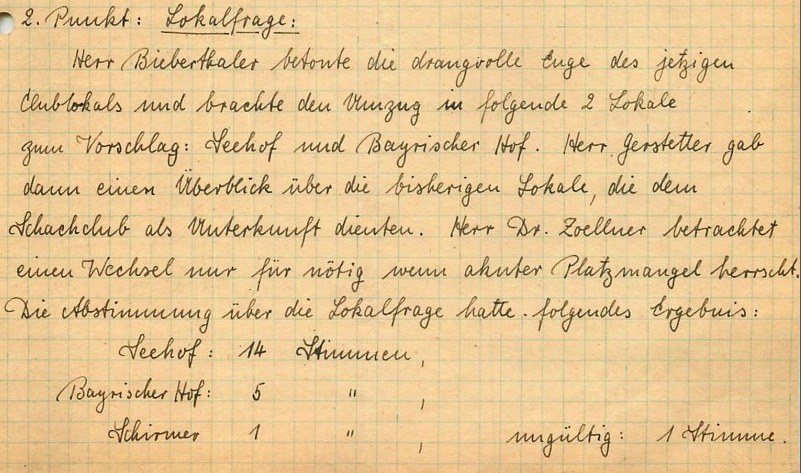 2. Punkt: Lokalfrage:
Herr Bieberthaler betonte die drangvolle Enge des jetzigen
Clublokals und brachte den Umzug in folgende 2 Lokale
zum Vorschlag: Seehof und Bayrischer Hof. Herr Gerstetter gab
dann einen Überblick über die bisherigen Lokale, die dem
Schachclub als Unterkunft dienten. Herr Dr. Zoellner betrachtet
einen Wechsel nur für nötig wenn akuter Platzmangel herrscht.
Die Abstimmung über die Lokalfrage hatte folgendes Ergebnis:
Seehof: 14 Stimmen,
Bayrischer Hof: 5 " ,
Schirmer 1 " , ungültig: 1 Stimme.